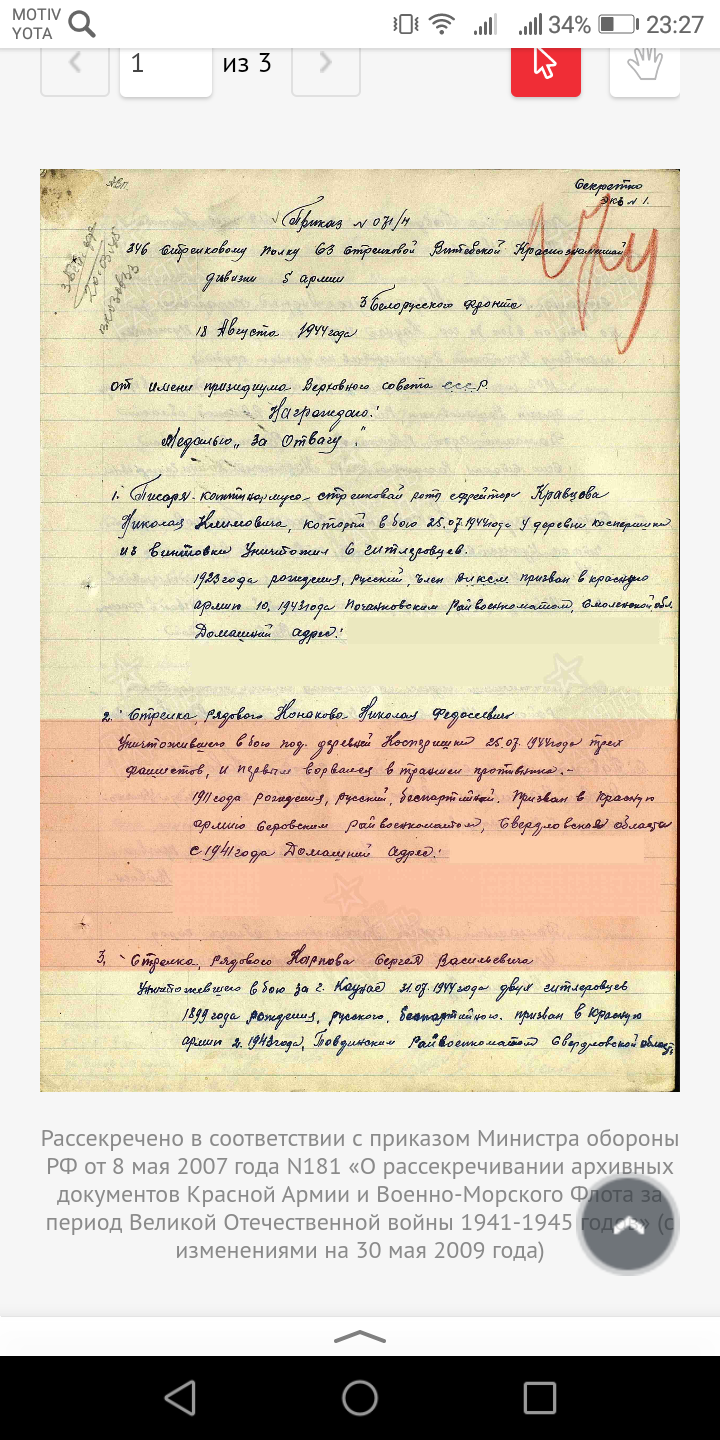 MOTIV
YOTA
34% 23:27
1 из 3
Секретно
Экз N 1.
Приказ N 071/н
346 Стрелковому полку 63 Стрелковой Витебской Краснознаменной
дивизии 5 армии
3 Белорусского фронта
18 Августа 1944 года
от имени президиума Верховного совета СССР.
Награждаю!
Медалью „За Отвагу."
1. Писаря стрелковой роты ефрейтора Кравцова
Николая Климовича, который в бою 25.07.1944 года у деревни
из винтовки уничтожил 6 гитлеровцев.
1923 года рождения, русский, член ВЛКСМ. призван в красную
армию 10. 1943 года Райвоенкоматом, Смоленской обл.
Домашний адрес:
2. Стрелка, рядового Конакова Николая Федосеевич
Уничтожившего в бою под деревней 25.07.1944 года трех
фашистов, и первым ворвался в траншеи противника.-
1911 года рождения, русский, беспартийный. Призван в Красную
армию Серовским райвоенкоматом, Свердловской области
с 1941 года Домашний адрес:
3. Стрелка, рядового Карпова Сергея Васильевича
Уничтожевшего в бою за г. Каунас 31.07.1944 года двух гитлеровцев
1899 года рождения, русского, беспартийного. призван в Красную
армию 2. 1943 года, Райвоенкоматом Свердловской области,
Рассекречено в соответствии с приказом Министра обороны
РФ от 8 мая 2007 года N181 «О рассекречивании архивных
документов Красной Армии и Военно-Морского Флота за
период Великой Отечественной войны 1941-1945 годов» (с
изменениями на 30 мая 2009 года)